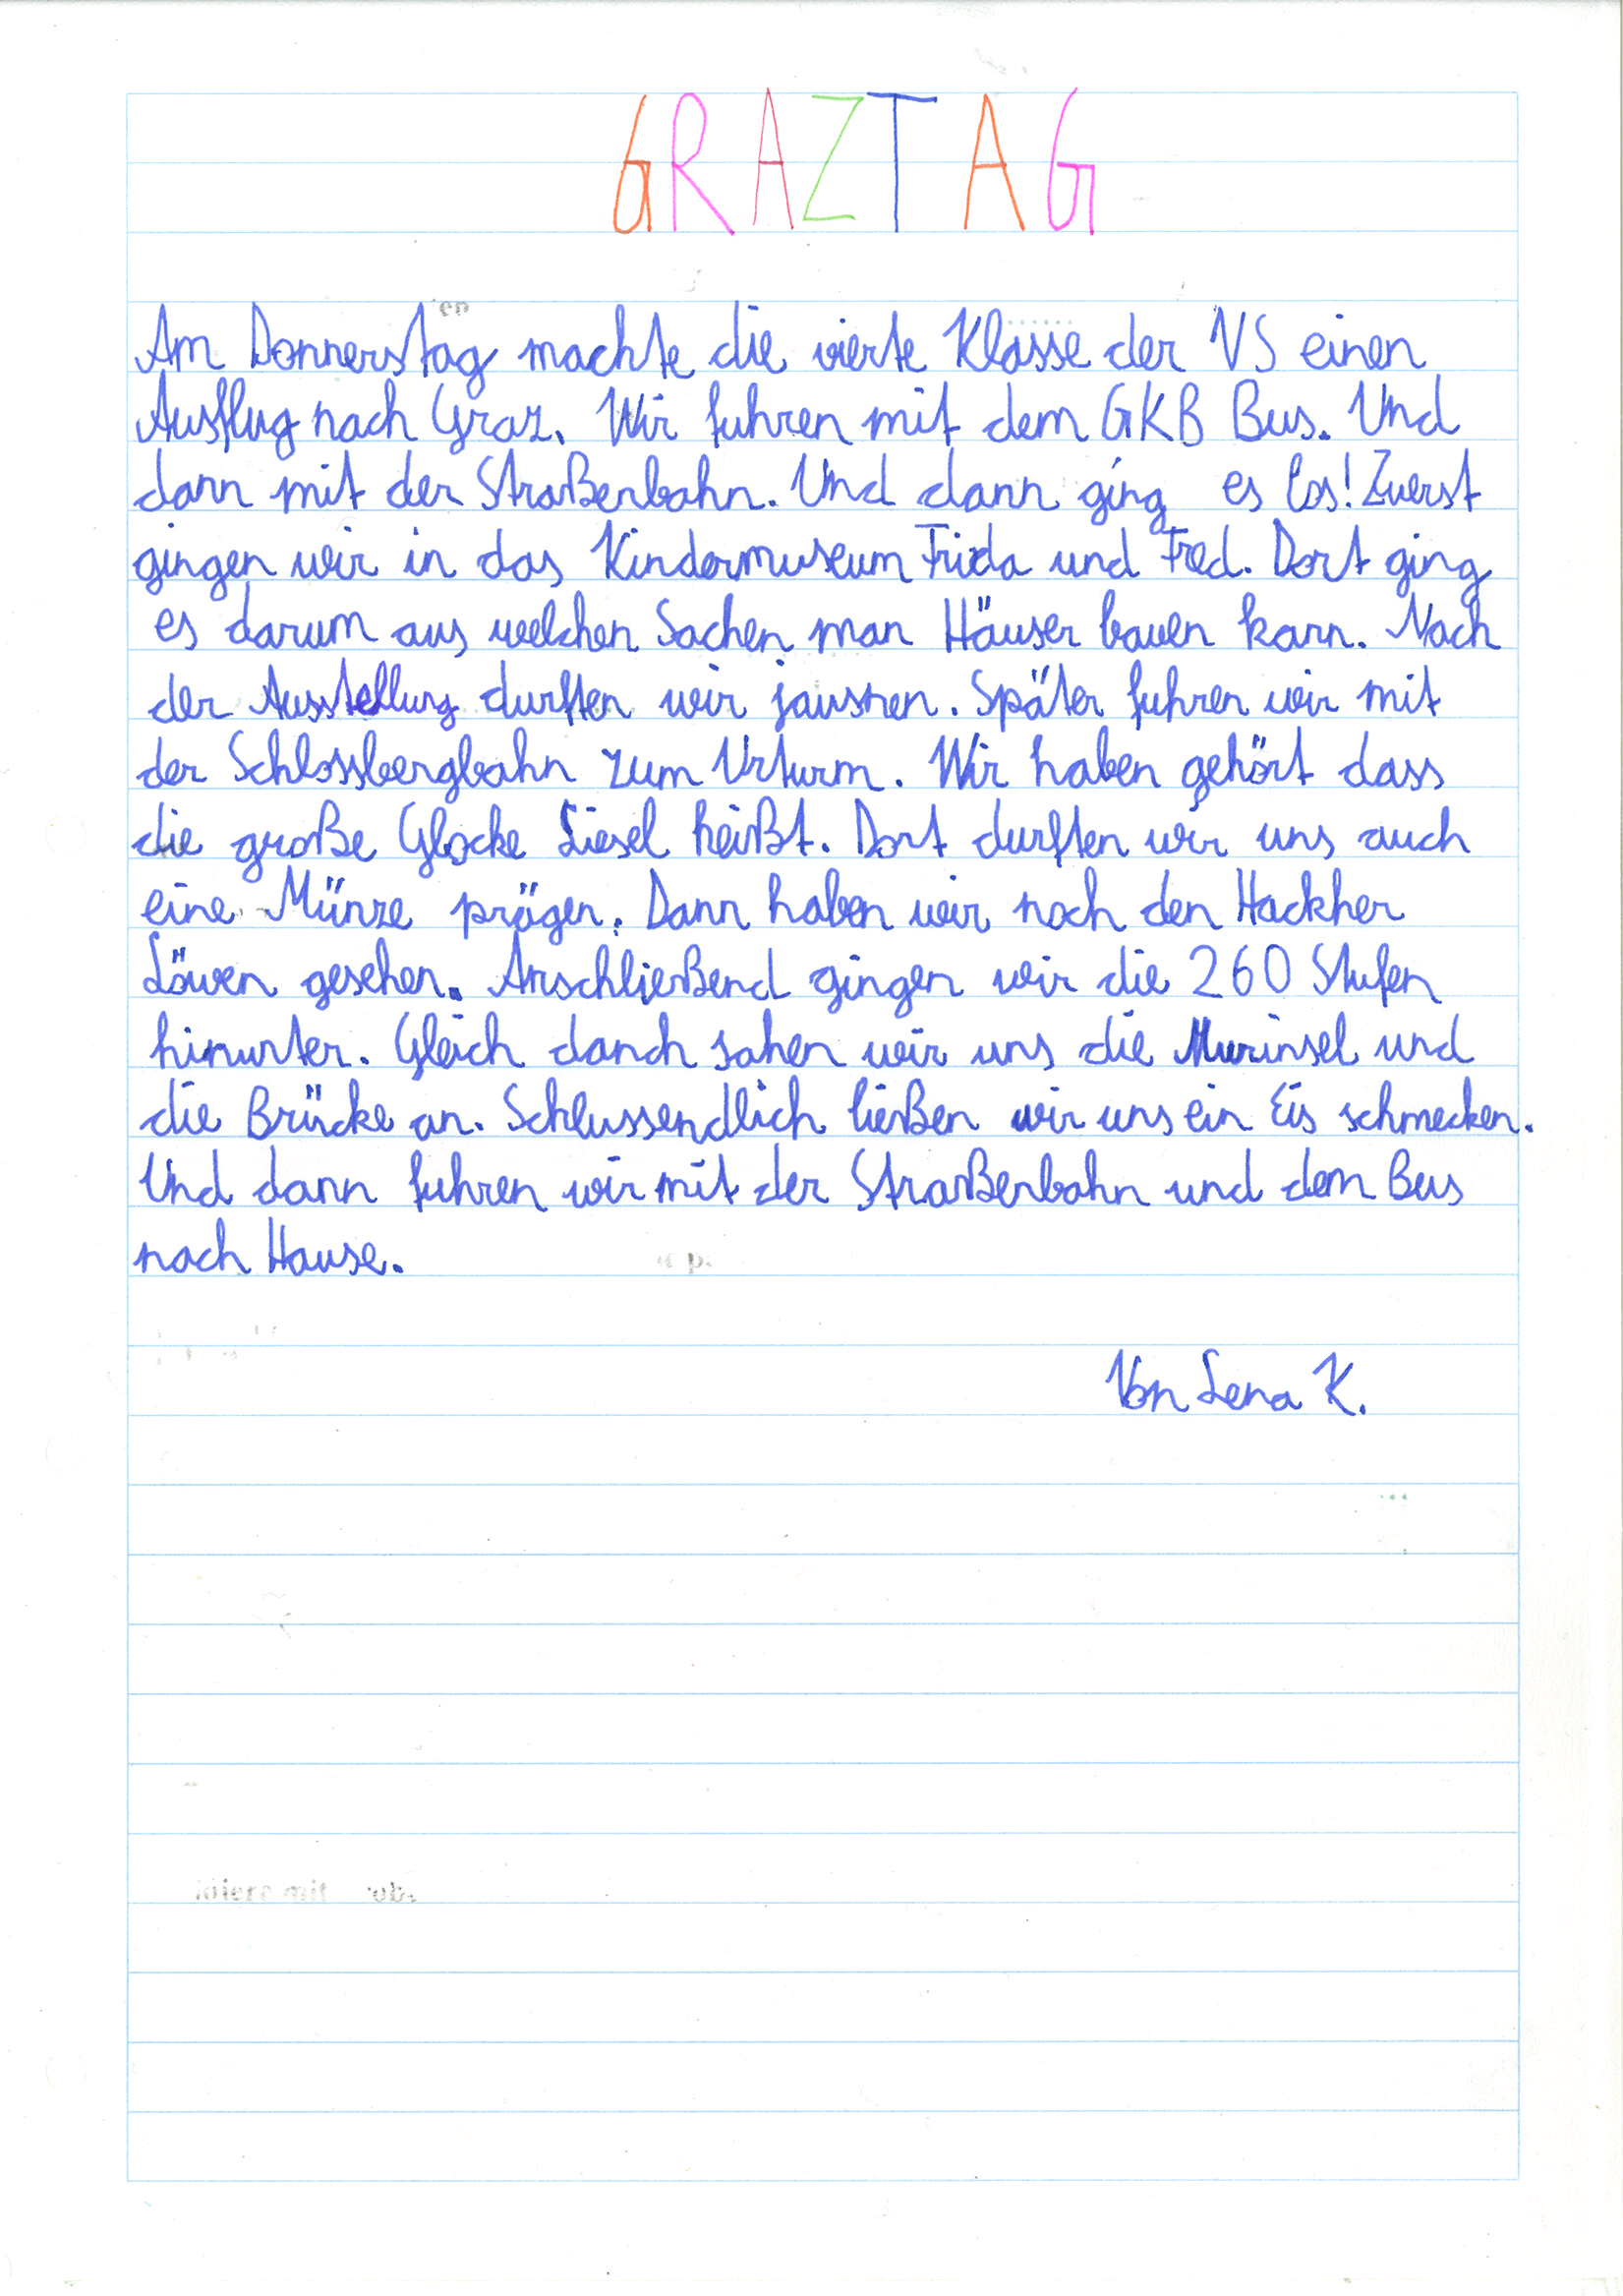 GRAZTAG
Am Donnerstag machte die vierte Klasse der VS einen
Ausflug nach Graz. Wir fuhren mit dem GKB Bus. Und
dann mit der Straßenbahn. Und dann ging es los! Zuerst
gingen wir in das Kindermuseum Frida und Fred. Dort ging
es darum aus welchen Sachen man Häuser bauen kann. Nach
der Ausstellung durften wir jausnen. Später fuhren wir mit
der Schlossbergbahn zum Urturm. Wir haben gehört dass
die große Glocke Liesel heißt. Dort durften wir uns auch
eine Münze prägen. Dann haben wir noch den Hackher
Löwen gesehen. Anschließend gingen wir die 260 Stufen
hinunter. Gleich danch sahen wir uns die Murinsel und
die Brücke an. Schlussendlich ließen wir uns ein Eis schmecken.
Und dann fuhren wir mit der Straßenbahn und dem Bus
nach Hause.
Von Lena K.